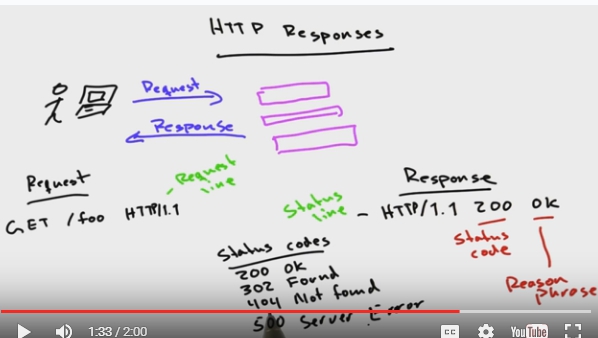 HTTP Responses
Request
Response
Request
Request line
GET /foo HTTP/1.1
Response
Status line - HTTP/1.1 200 OK
Status code
Reason Phrase
Status codes
200 OK
302 Found
404 Not found
500 Server Error
1:33 / 2:00
CC
YouTube